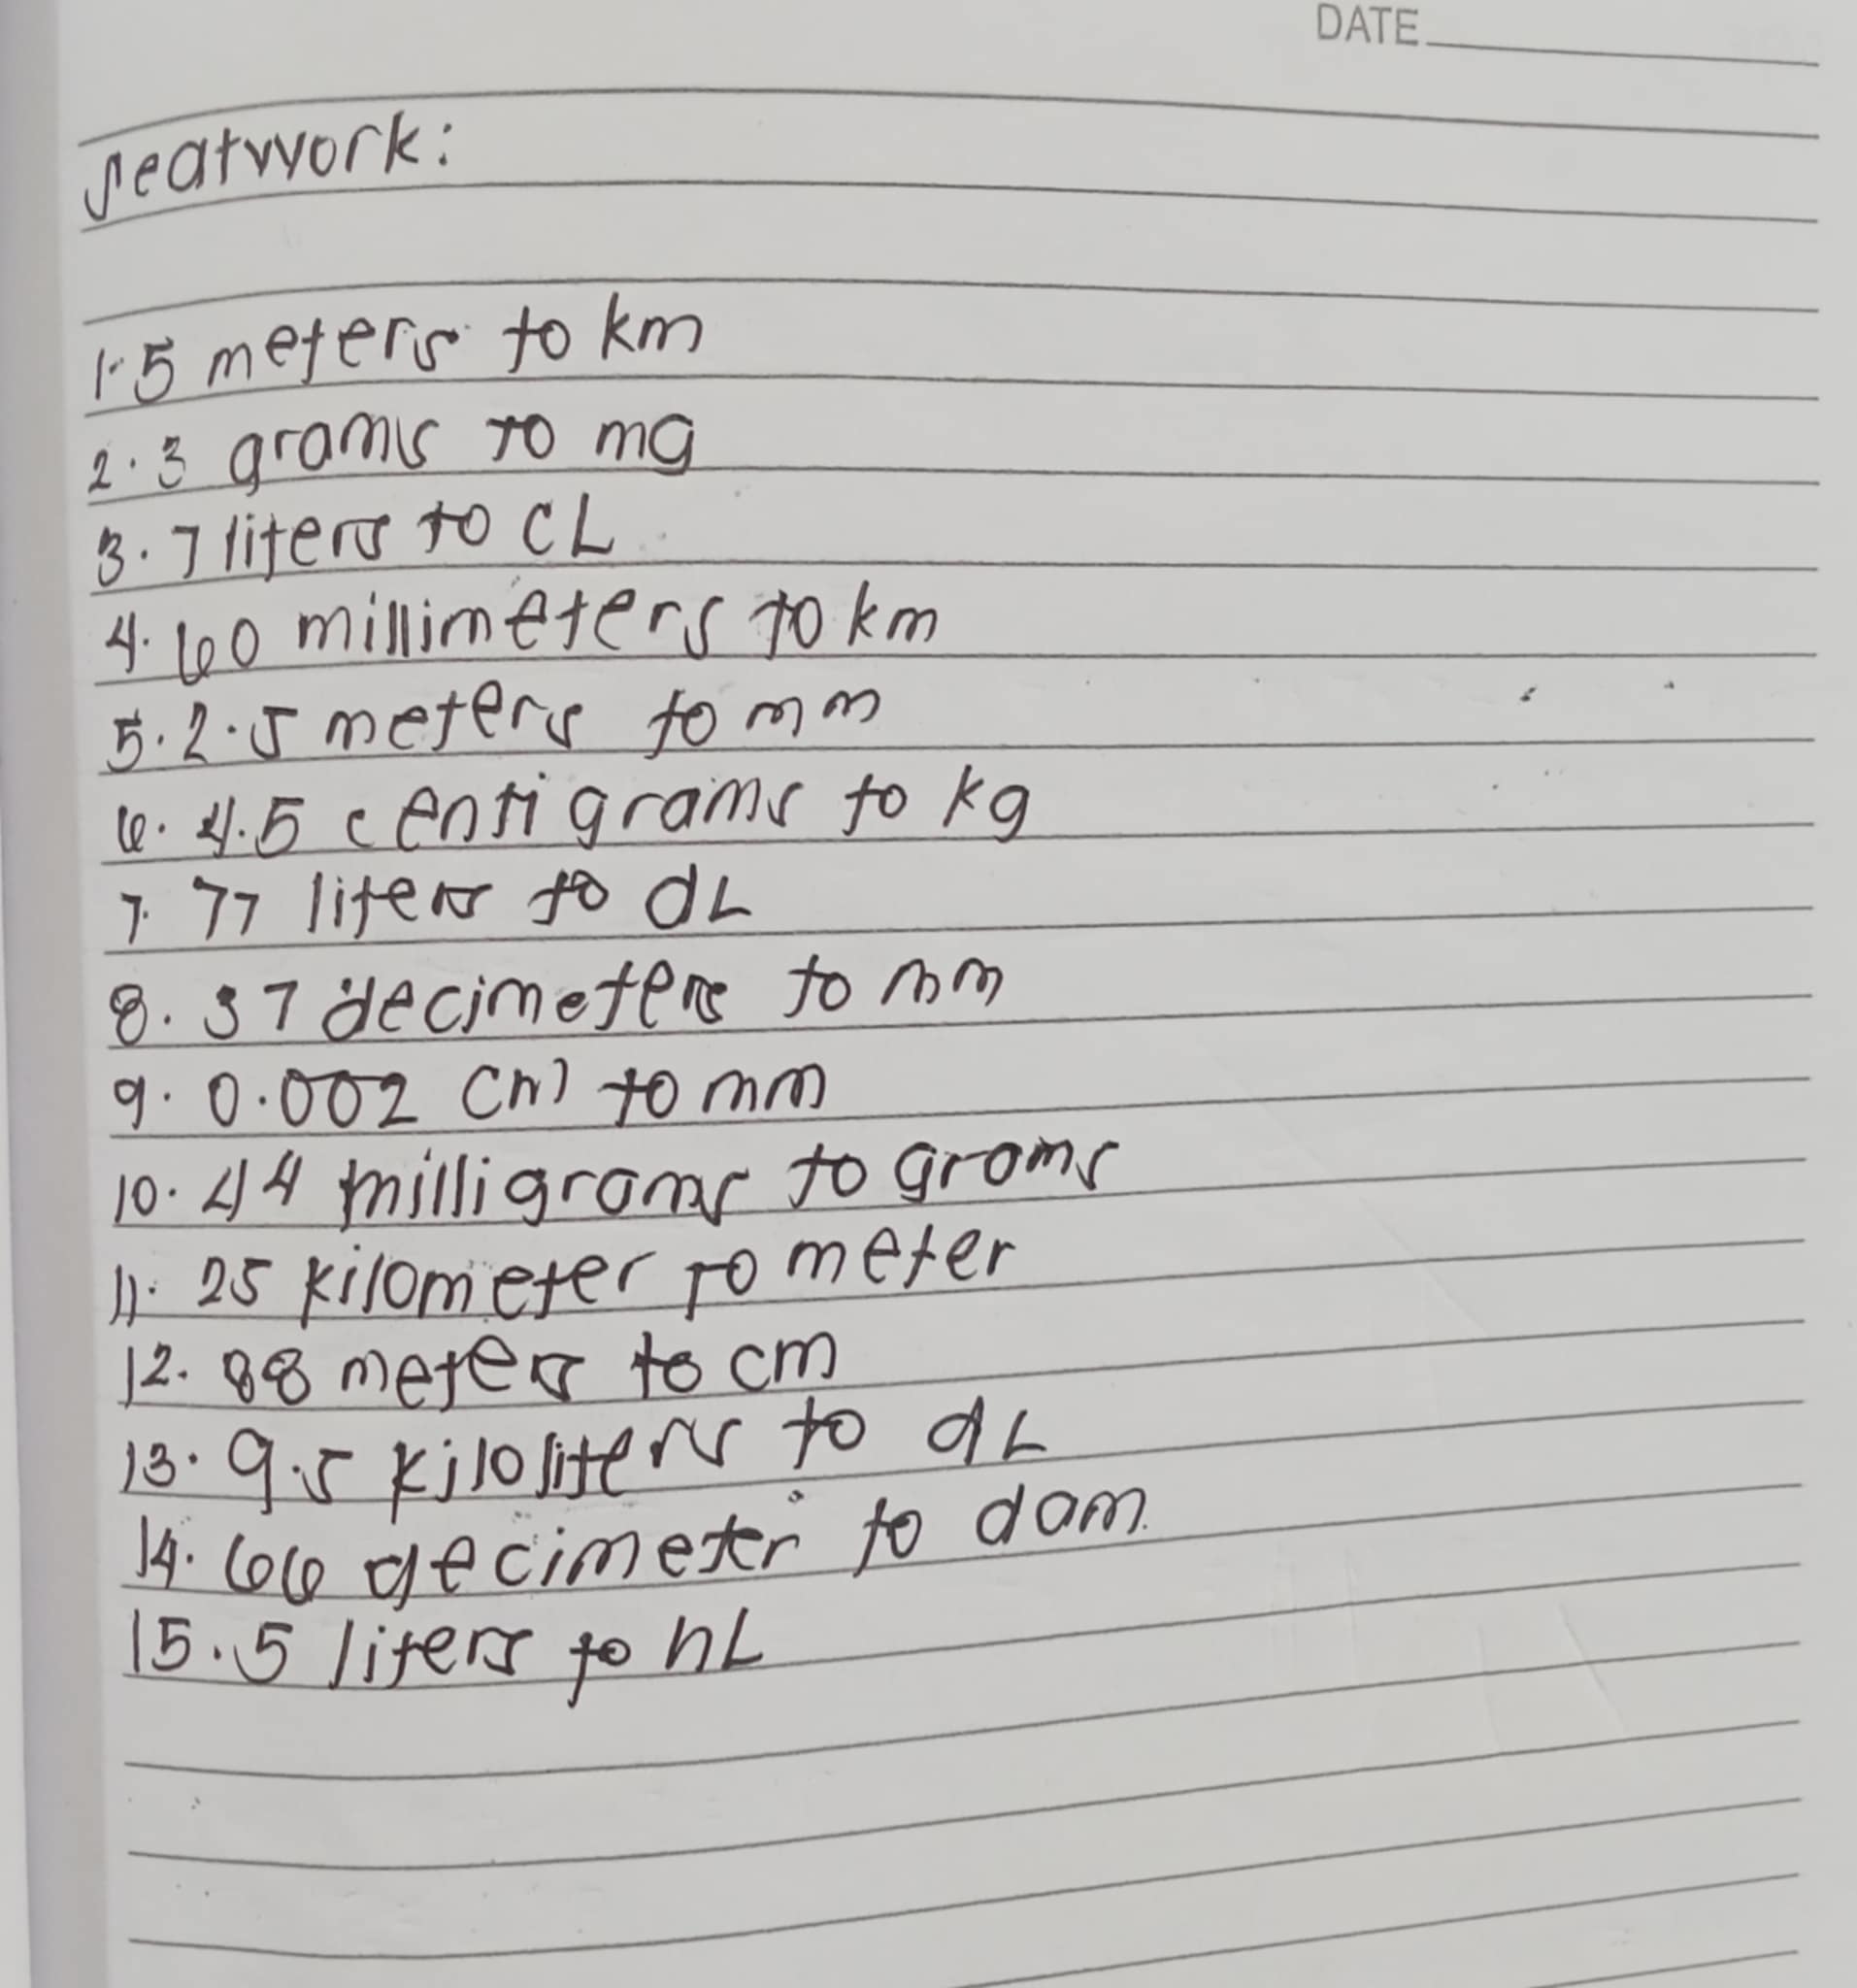 DATE
seatwork:
1. 5 meters to km
2. 3 grams to mg
3. 7 liters to CL
4. 60 millimeters to km
5. 2.5 meters to mm
6. 4.5 centigrams to kg
7. 77 liters to dL
8. 37 decimeters to mm
9. 0.002 cm to mm
10. 44 milligrams to grams
11. 25 kilometer to meter
12. 88 meters to cm
13. 9.5 kiloliters to dL
14. 66 decimeter to dam
15. 5 liters to hL